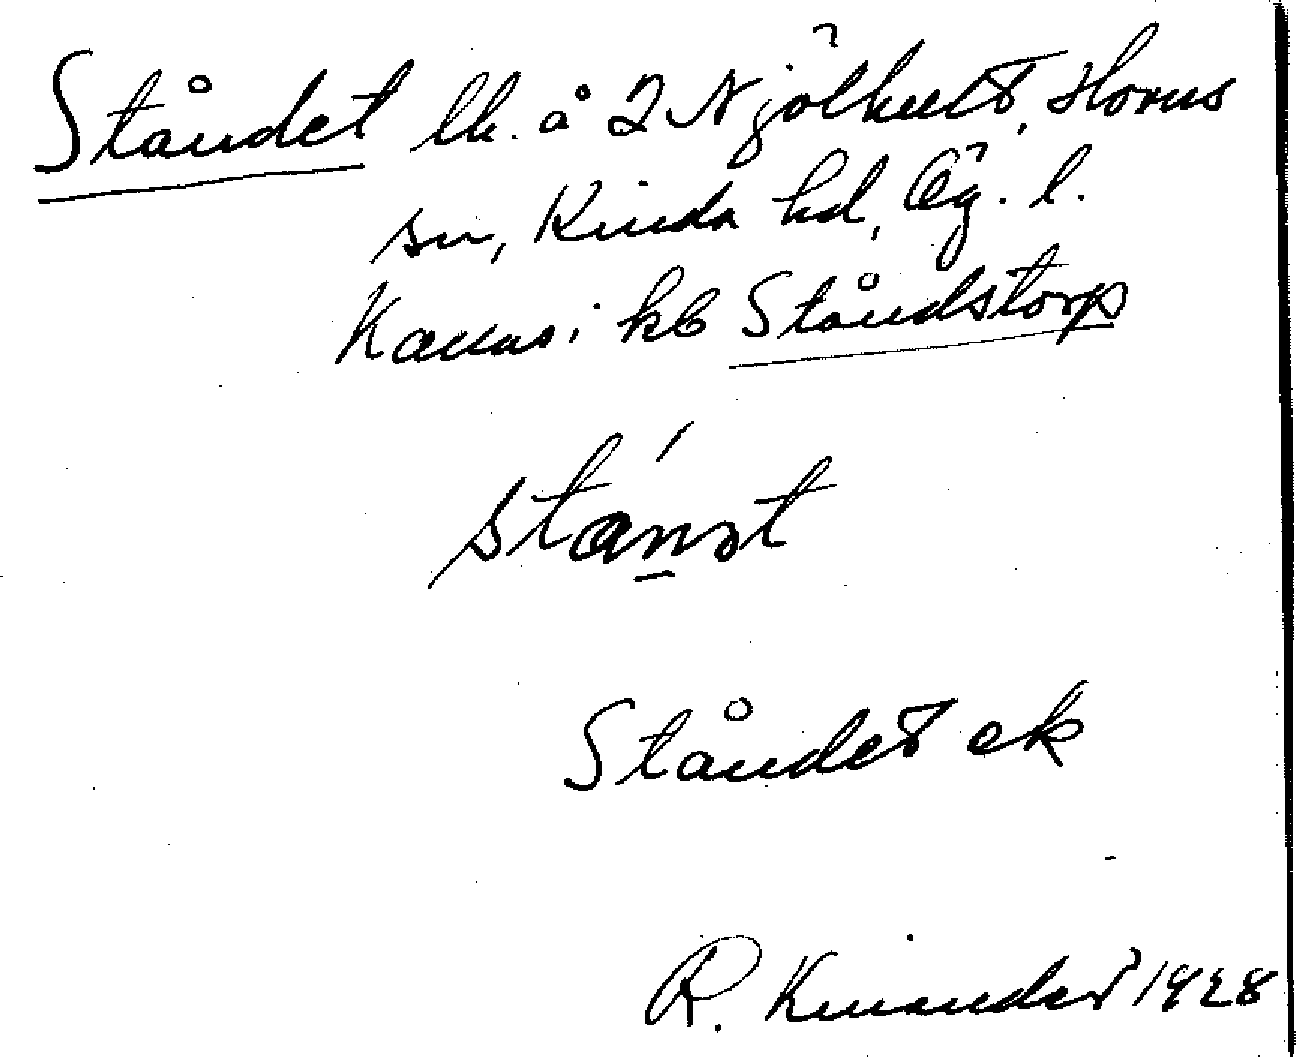 Ståndet lh. å 2 Njölhult, Horns
sn, Kinda hd, Ög. l.
Kallas i kb Ståndstorp
stánst
Ståndet ek
R. Kinander 1928